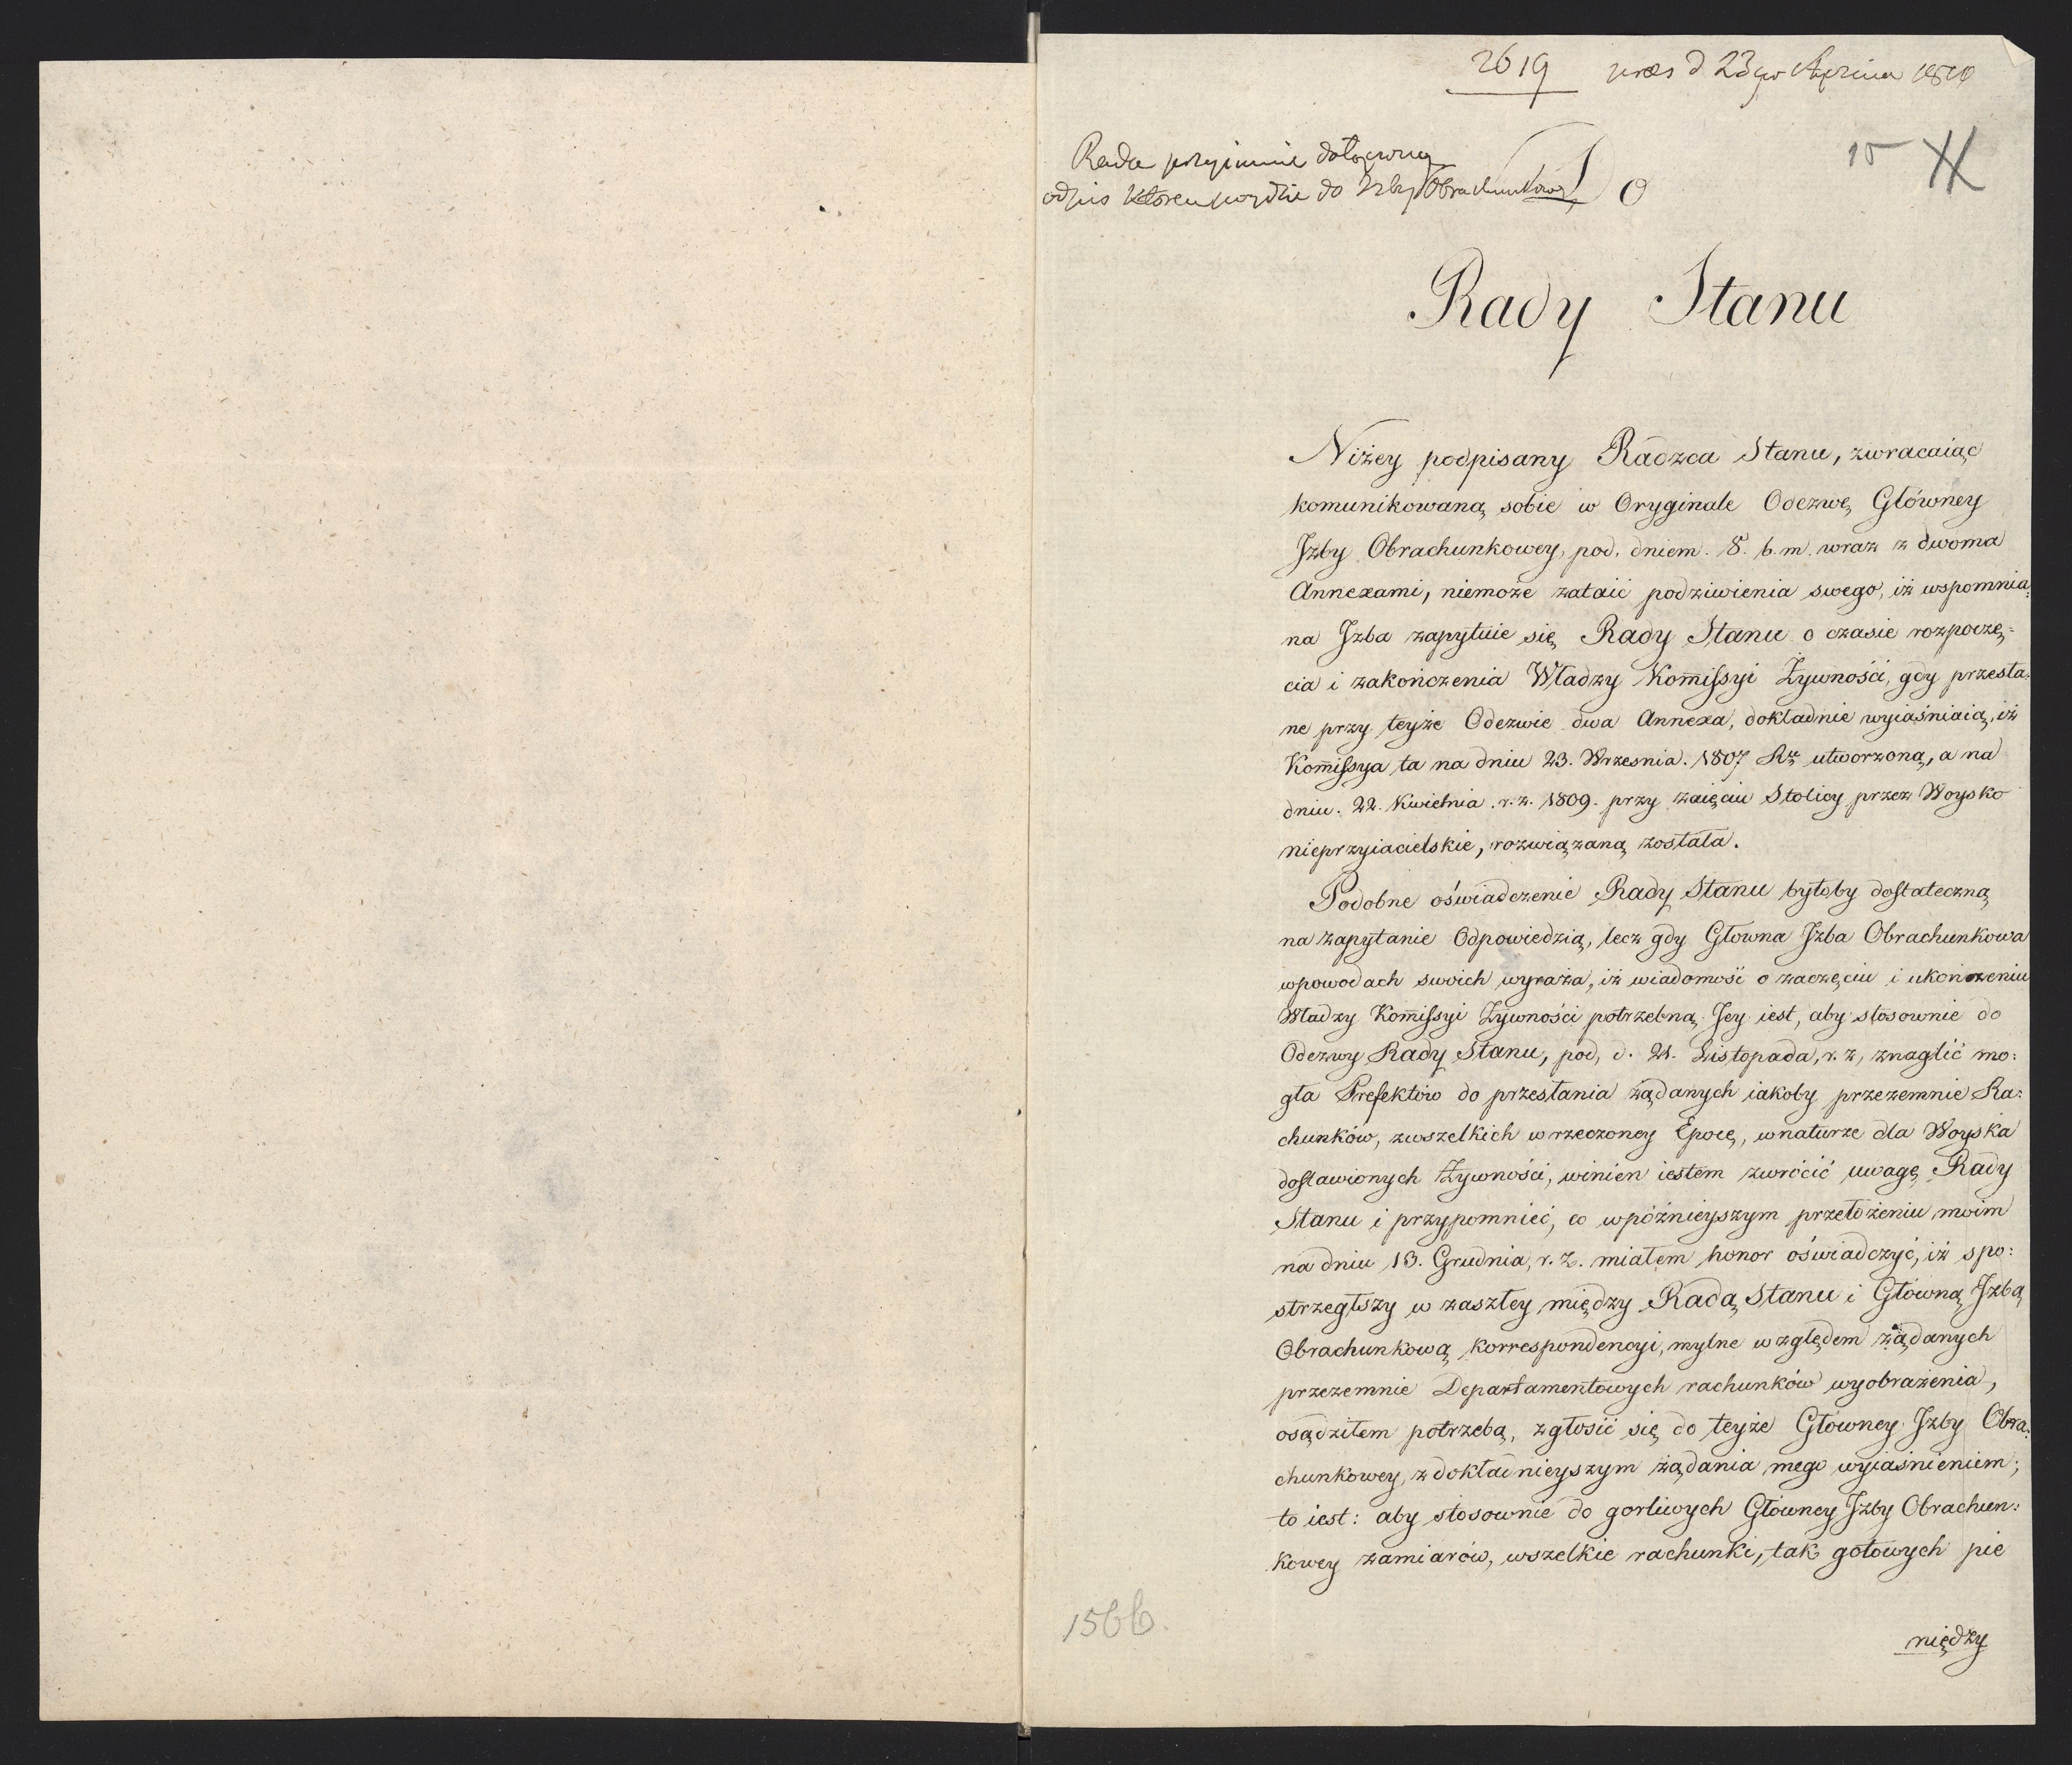 2619 præs d 23go Aprilis 1810
15
Rada przyimuie dołączony
odpis którен poydzie do Izby Obrachunkowey
Do
Rady Stanu
Niżey podpisany Radzca Stanu, zwracaiąc
komunikowaną sobie w Oryginale Odezwę Główney
Jzby Obrachunkowey, pod. dniem. 8. b. m. wraz z dwoma
Annexami, niemoże zataić podziwienia swego, iż wspomnia:
na Jzba zapytuie się Rady Stanu o czasie rozpoczę:
cia i zakończenia Władzy Kommissyi Żywności, gdy przesła:
ne przy teyże Odezwie dwa Annexa, dokładnie wyiaśniaią, iż
Kommissya ta na dniu 23. Wrzesnia. 1807 Rku utworzoną, a na
dniu. 22. Kwietnia. r. z. 1809. przy zaięciu Stolicy przez Woysko
nieprzyiacielskie, rozwiązaną została.
Podobne oświadczenie Rady Stanu byłoby dostateczną
na zapytanie Odpowiedzią, lecz gdy Głowna Jzba Obrachunkowa
wpowodach swoich wyraża, iż wiadomość o zaczęciu i ukończeniu
Władzy Kommissyi Żywności potrzebną Jey iest, aby stosownie do
Odezwy Rady Stanu, pod, d. 21. Listopada, r. z, znaglić mo:
gła Prefektów do przesłania żądanych iakoby przezemnie Ra:
chunków, zwszelkich w rzeczoney Epoce, wnaturze dla Woyska
dostawionych Żywności, winien iestem zwrócić uwagę Rady
Stanu i przypomnieć, co wpóźnieyszym przełożeniu moim
na dniu 13. Grudnia, r. z. miałem honor oświadczyć, iż spo:
strzegłszy w zaszłey między Radą Stanu i Główną Jzbą
Obrachunkową korrespondencyi, mylne względem żądanych
przezemnie Departamentowych rachunków wyobrażenia,
osądziłem potrzebą, zgłosić się do teyże Główney Jzby Obra:
chunkowey, z dokładnieyszym żądania mego wyiaśnieniem;
to iest: aby stosownie do gorliwych Główney Jzby Obrachun:
kowey zamiarów, wszelkie rachunki, tak gotowych pie
niędzy
1566.